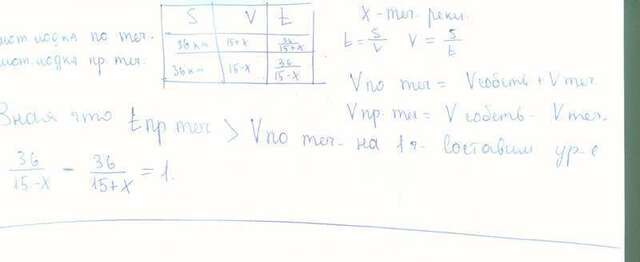 S V t
мот. лодка по теч. 36 км 15+x 36/15+x
мот. лодка пр. теч. 36 км 15-x 36/15-x
X - теч. реки.
t = S/V V = S/t
V по теч = V собств + V теч
V пр. теч = V собств - V теч.
Зная что t пр. теч > V по теч. на 1 ч. составим ур-е
36/15-x - 36/15+x = 1.